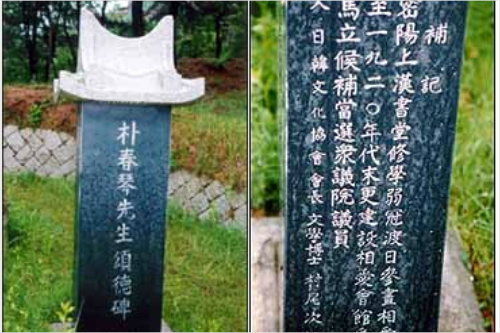 朴春琴先生頌德碑
補記
密陽上漢書堂修學弱冠渡日參畫相
至一九二〇年代末更建設相愛會館
馬立候補當選衆議院議員
日韓文化協會會長 文學博士 村尾次